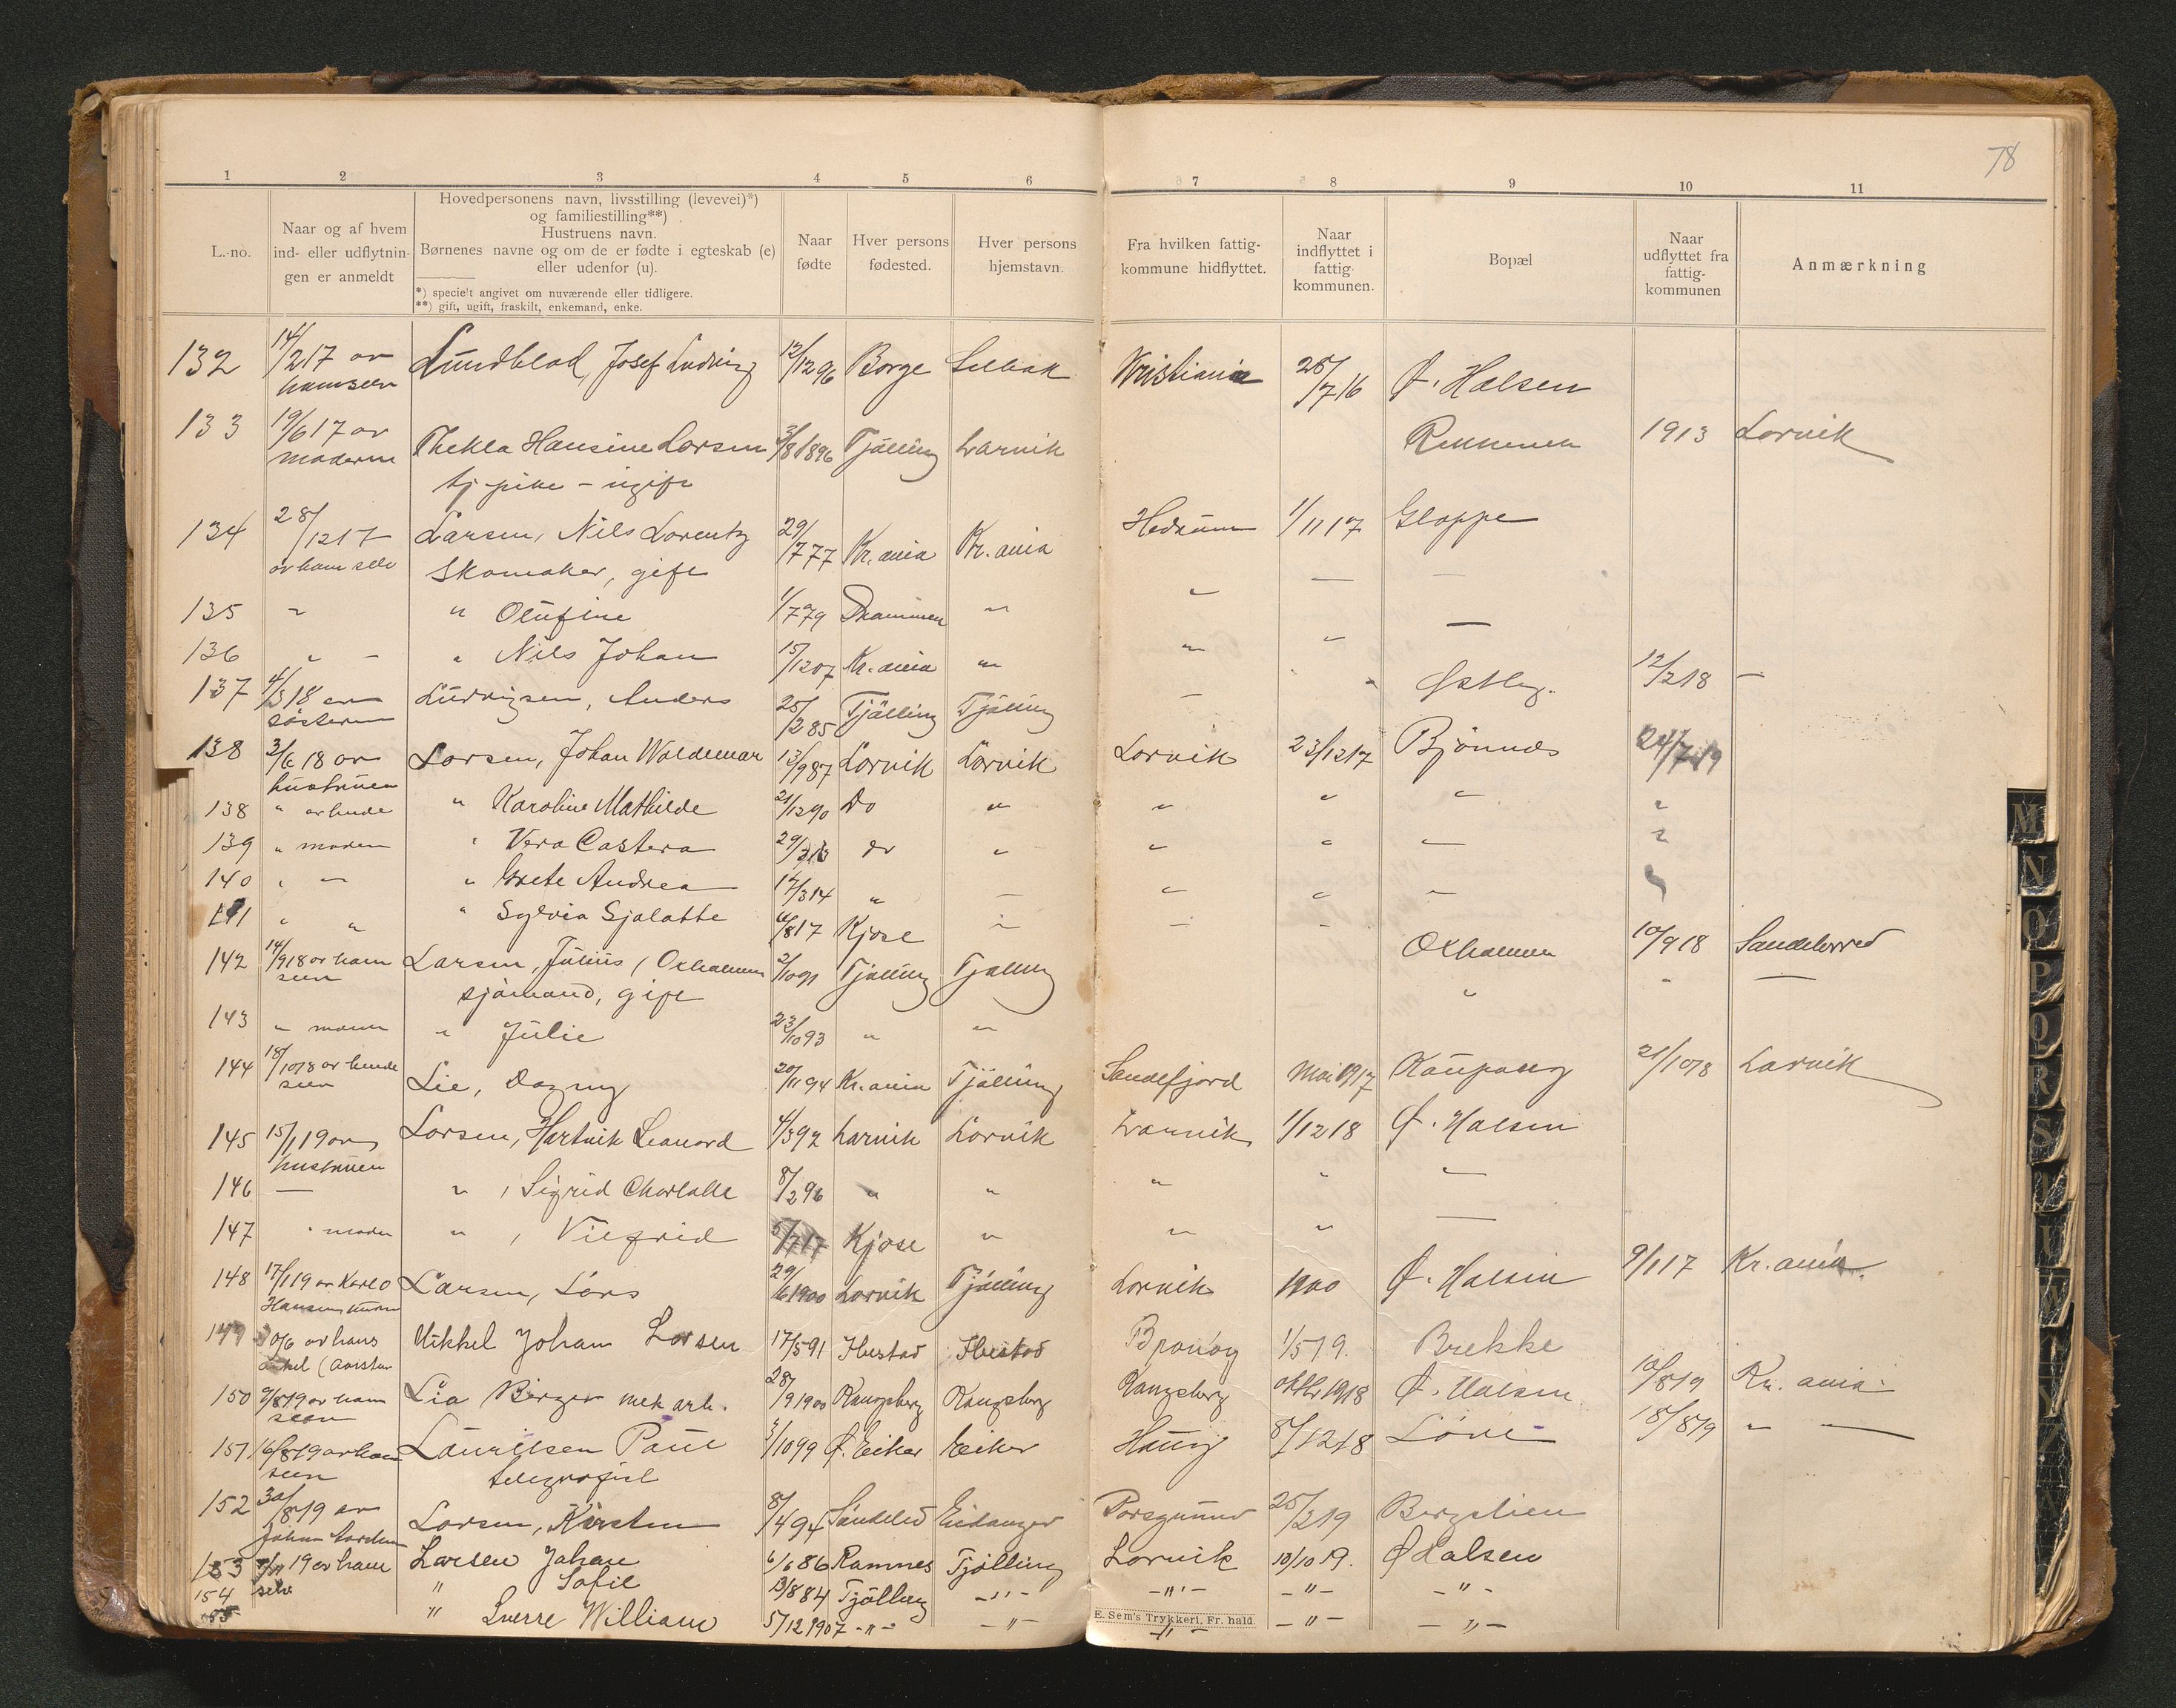 78
1 2 3 4 5 6 7 8 9 10 11
L.-no.
Naar og af hvem
ind- eller udflytnin-
gen er anmeldt
Hovedpersonens navn, livsstilling (levevei)*)
og familiestilling**)
Hustruens navn.
Børnenes navne og om de er fødte i egteskab (e)
eller udenfor (u).
*) specielt angivet om nuværende eller tidligere.
**) gift, ugift, fraskilt, enkemand, enke.
Naar
fødte
Hver persons
fødested.
Hver persons
hjemstavn.
Fra hvilken fattig-
kommune hidflyttet.
Naar
indflyttet i
fattig-
kommunen.
Bopæl
Naar
udflyttet fra
fattig-
kommunen
Anmærkning
132 14/2 17 av Lundblad, Josef Ludvig 12/12 96 Borge Selbak Kristiania 28/7 16 Ø. Halsen
133 19/6 17 av Thekla Hansine Larsen 3/8 1896 Tjølling Larvik 1913 Larvik
moderen tj.pike - ugift
134 28/12 17 Larsen, Nils Lorentz 29/7 77 Kr.ania Kr.ania Hedrum 1/11 17 Gloppe
av ham selv Skomaker, gift
135 " " Olufine 1/7 79 Drammen " " — —
136 " - " Nils Johan 15/12 07 Kr.ania " " " —
137 4/3 18 av Ludvigsen, Anders 25/2 85 Tjølling Tjølling — " Østby. 12/2 18 —
søsteren
138 3/6 18 av Larsen, Johan Waldemar 13/9 87 Larvik Larvik Larvik 23/12 17 Bjønnes 24/7 19
hustruen
138 " av hende " Karoline Mathilde 21/12 90 Do " " " " "
139 " moren " Vera Castera 29/3 13 do " " " — "
140 " — " Grete Andrea 17/3 14 " — " " —
141 " " " Sylvia Sjalotte 4/8 17 Kjose " — "
142 14/9 18 av ham Larsen, Julius (Oxholmen 2/10 91 Tjølling Tjølling Oxholmen 10/9 18 Sandeherred
selv sjømand, gift " " —
143 " manen " Julie 23/10 93 " "
144 18/10 18 av hende Lie, Dagny 20/11 94 Kr.ania Tjølling Sandefjord Mai 1917 Kaupang 21/10 18 Larvik
selv
145 15/1 19 av Larsen, Hartvik Leonard 4/3 92 Larvik Larvik Larvik 1/12 18 Ø. Halsen
hustruen
146 — " , Sigrid Charlotte 8/2 96 " " " " "
147 " moren " , Viegrid 5/7 17 Kjose " " " —
148 17/1 19 av Karl O Larsen, Lars 29/6 1900 Larvik Tjølling Larvik 1900 Ø. Halsen 9/1 17 Kr.ania.
149 30/6 av hans Mikkel Johan Larsen 17/5 91 Hustad Hustad Brønøy 1/5 19. Brekke
150 9/8 19 av ham Lia Birger mek arb. 28/9 1900 Kongsberg Kongsberg Kongsberg oktbr 1918 Ø. Halsen 10/8 19 Kr.ania
selv
151 16/8 19 av ham Lauritsen Paul 3/10 99 Ø. Eiker Eiker Haug 8/12 18 Løve 18/8 19 " —
selv telegrafist
152 30/8 19 av Larsen, Karsten 8/4 94 Søndeled Eidanger Porsgrund 25/2 19 Bergslien
Johan
153 19 av ham Larsen Johan 6/6 86 Ramnes Tjølling Larvik 10/10 19. Ø Halsen
154 selv " Sofie 13/8 84 Tjølling -"- -"- -"- -"-
155 " Sverre William 5/12 1907 -"- -"- -"- -"- -"-
E. Sem's Trykkeri, Fr.hald.
M
N
O
P
Q
R
S
T
U
W
Y
Z